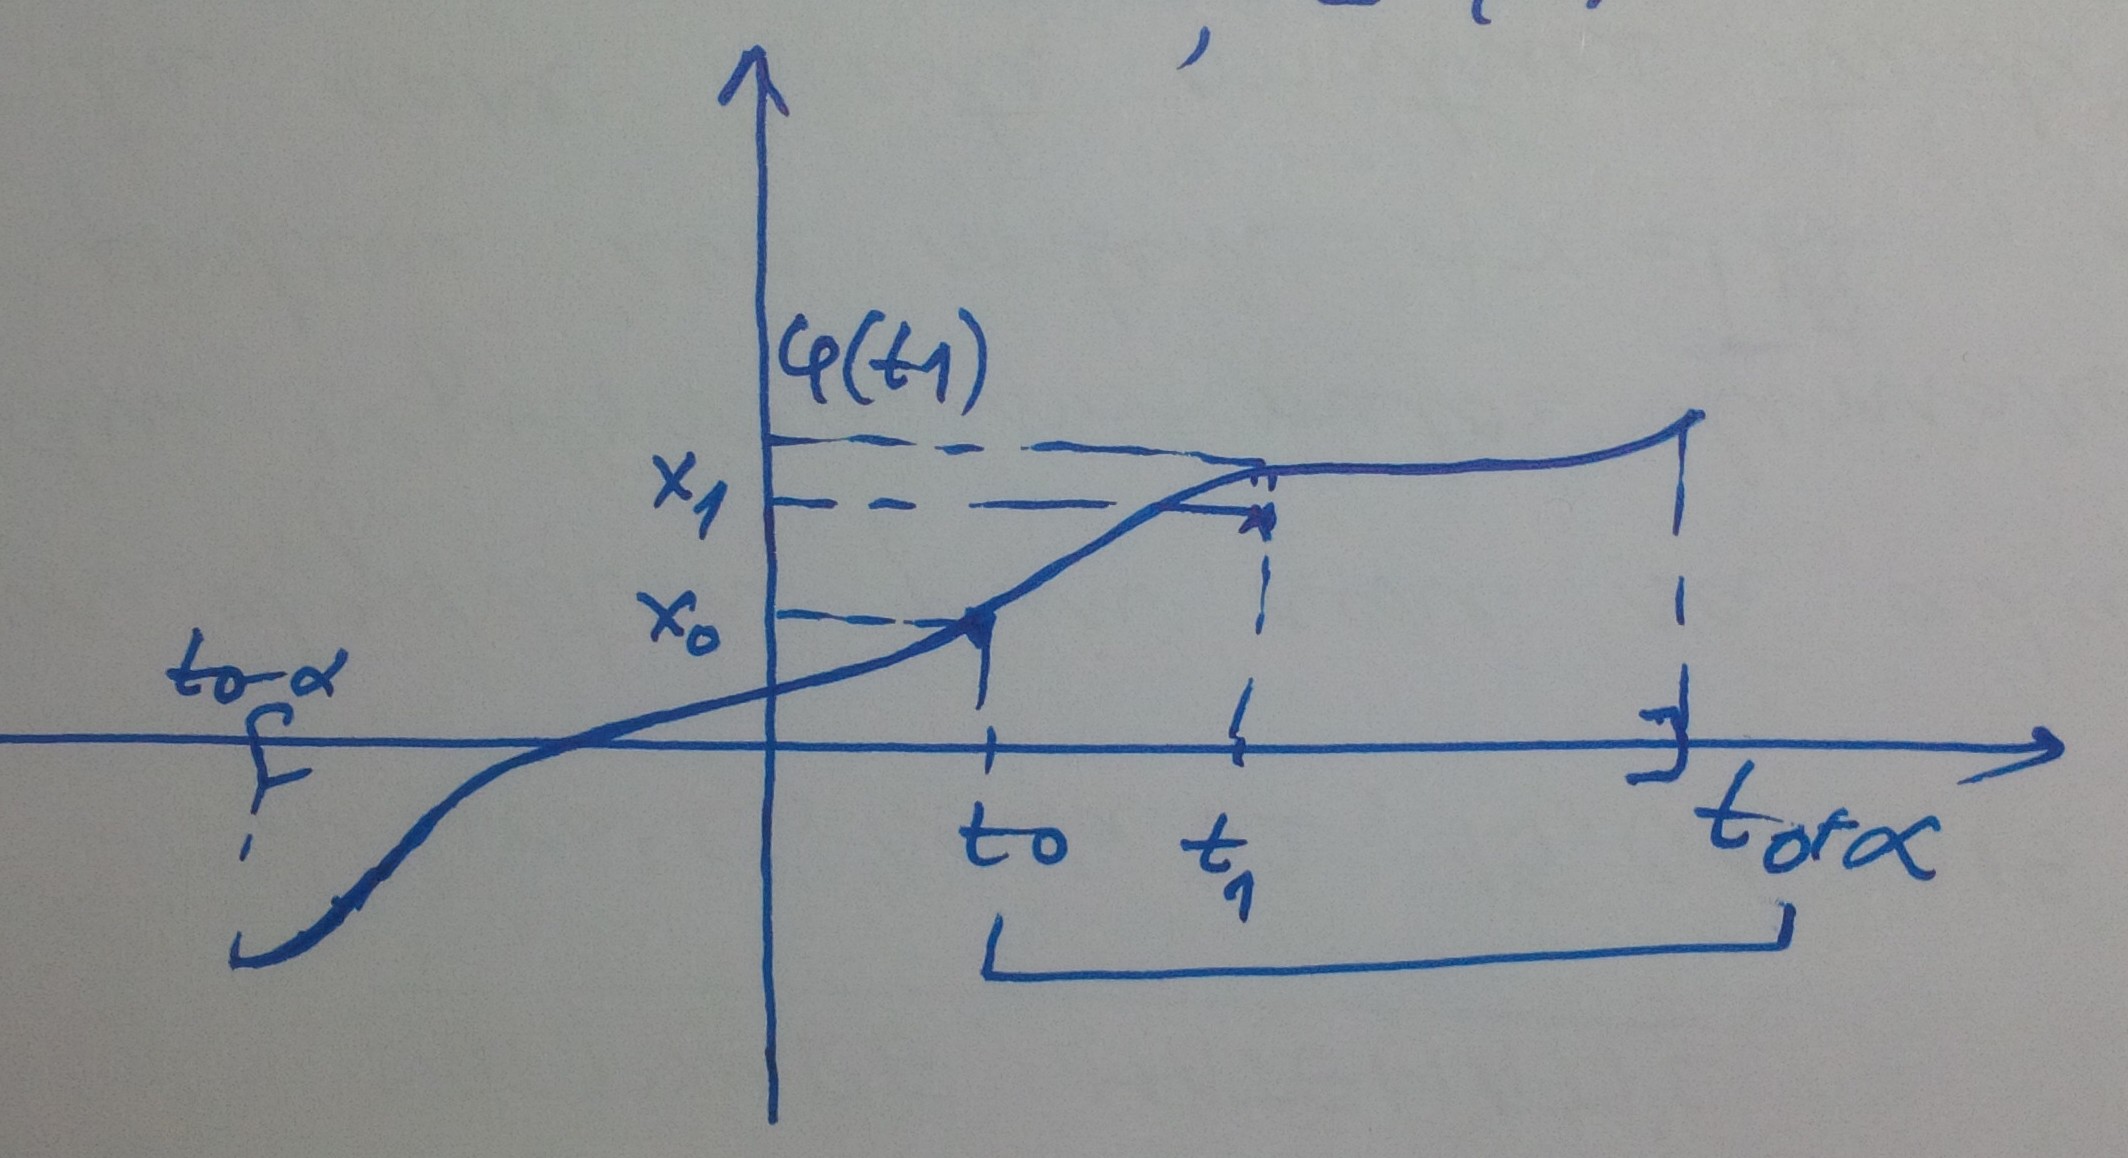 φ(t1)
x1
x0
t0-α
t0 t1 t0+α